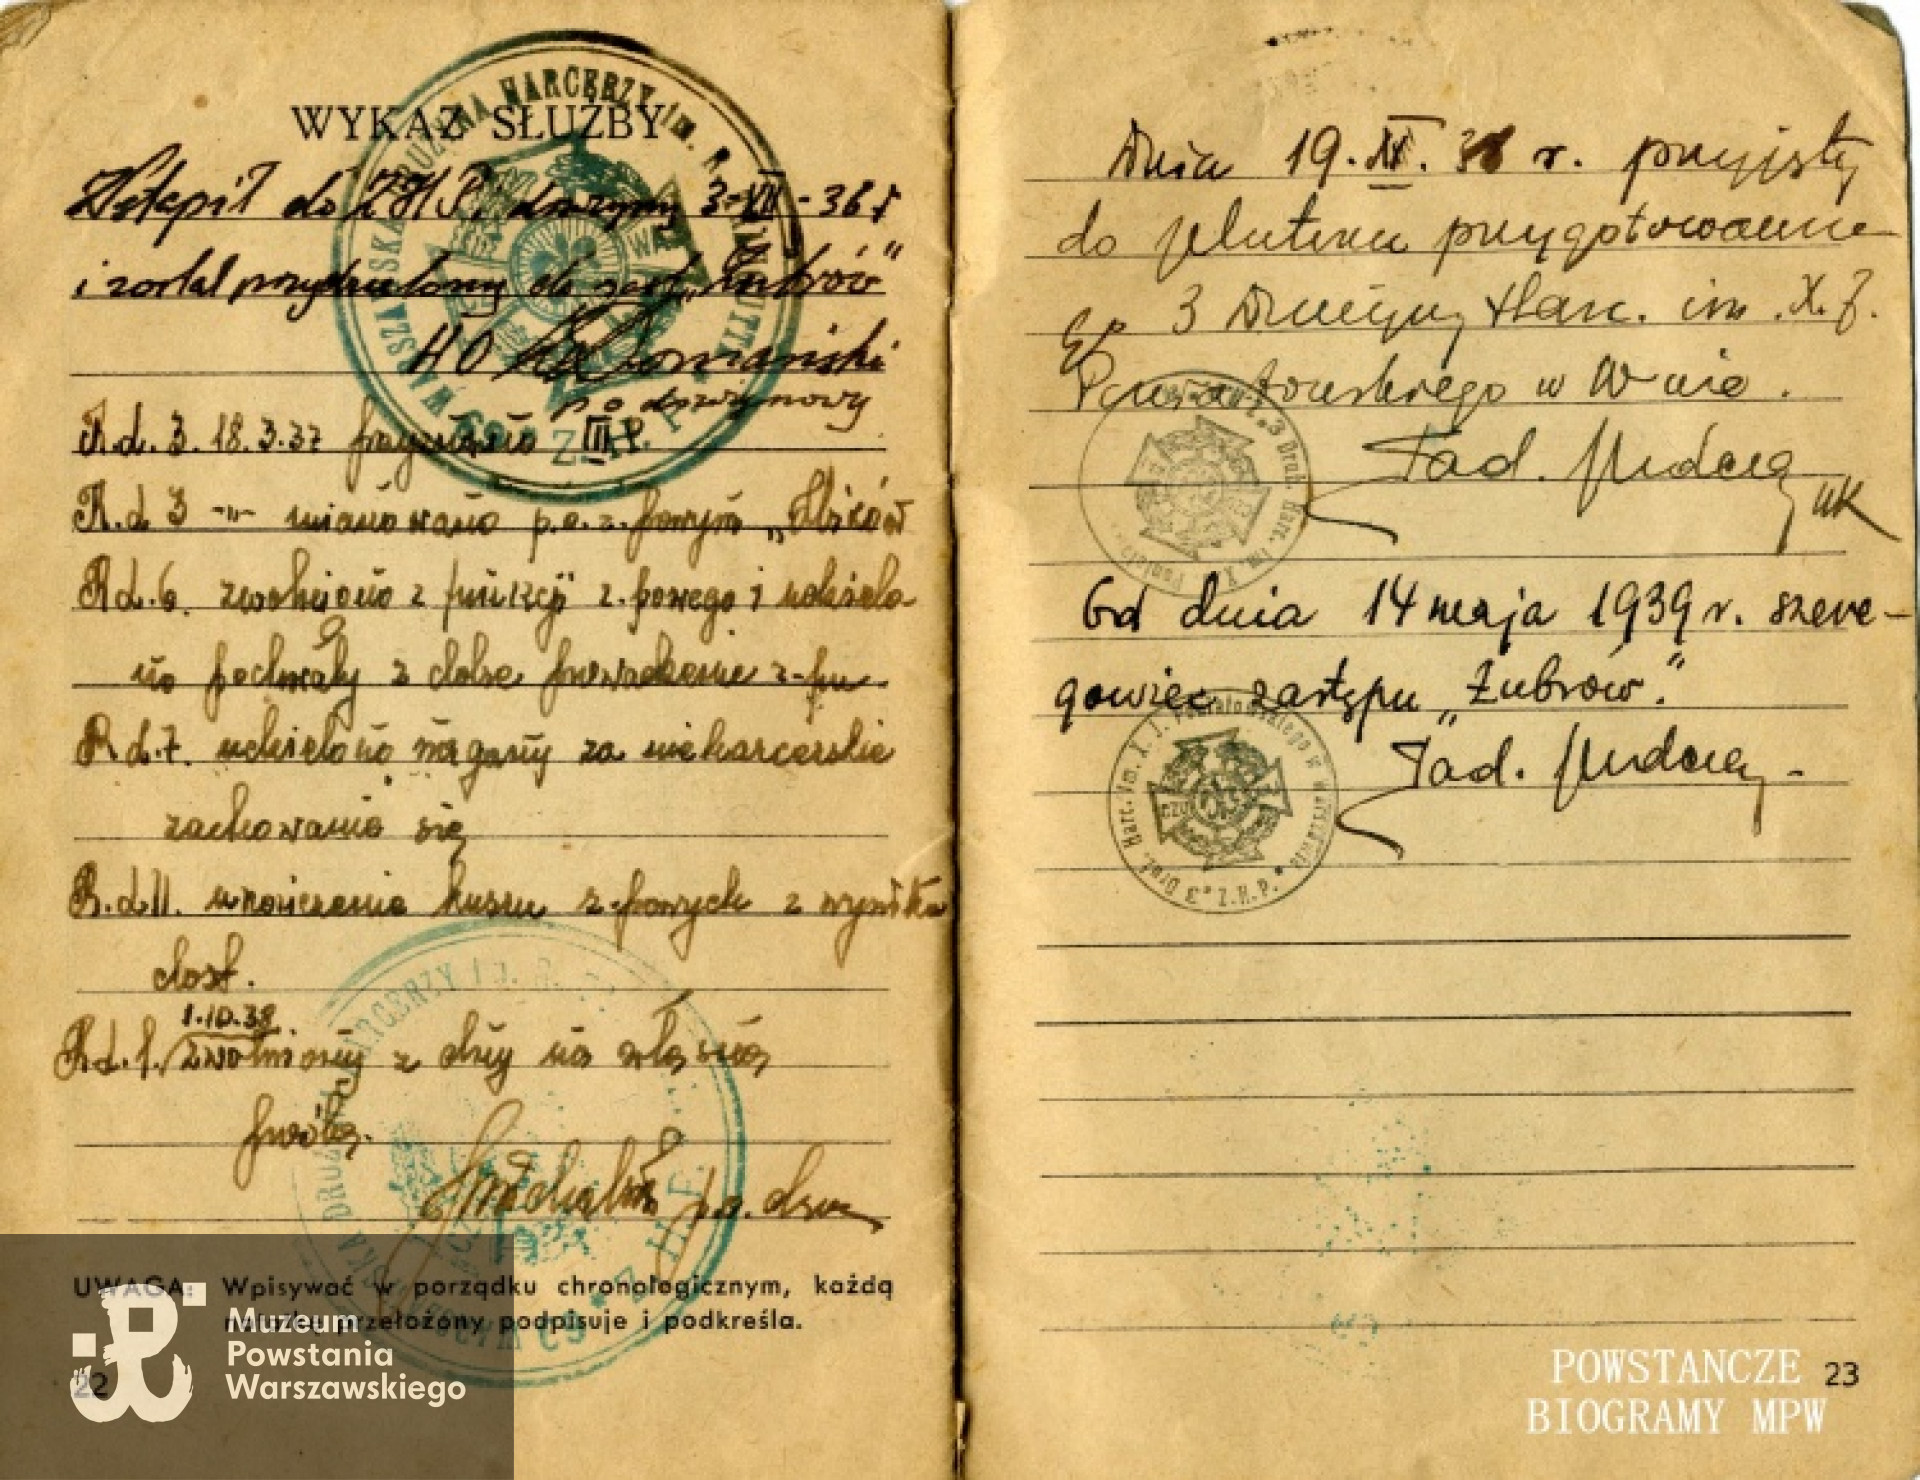 WYKAZ SŁUŻBY
Wstąpił do Z.H.P. drużyny 3-XII-36 r
i został przydzielony do zast. „Żubrów"
HO Domański
p o drużynowy
R.d. 3. 18.3.37 przyznano III P.
R.d 3 -"- mianowano p.o. z-powym
R.d.6. zwolniono z funkcji z-powego i udzielo-
no pochwały z dobre prowadzenie z-pu.
R.d.7. udzielono nagany za nieharcerskie
zachowanie się
R.d.11. ukończenie kursu z-powych z wynikie
dost.
1.10.38
R.d.1. zwolniony z drży na własną
prośbę.
p.o. drużn
UWAGA: Wpisywać w porządku chronologicznym, każdą
notatkę przełożony podpisuje i podkreśla.
22
Muzeum
Powstania
Warszawskiego
Dnia 19. XI. 38 r. przyjęty
do plutonu przygotowawcze-
go 3 Drużyny Harc. im. X. J.
Poniatowskiego w W-wie.
Tad.
Od dnia 14 maja 1939 r. szere-
gowiec zastępu „Żubrów."
Tad.
3 Druż. Harc. im. X. J. Poniatowskiego w Warszawie Z.H.P.
POWSTAŃCZE
BIOGRAMY MPW
23